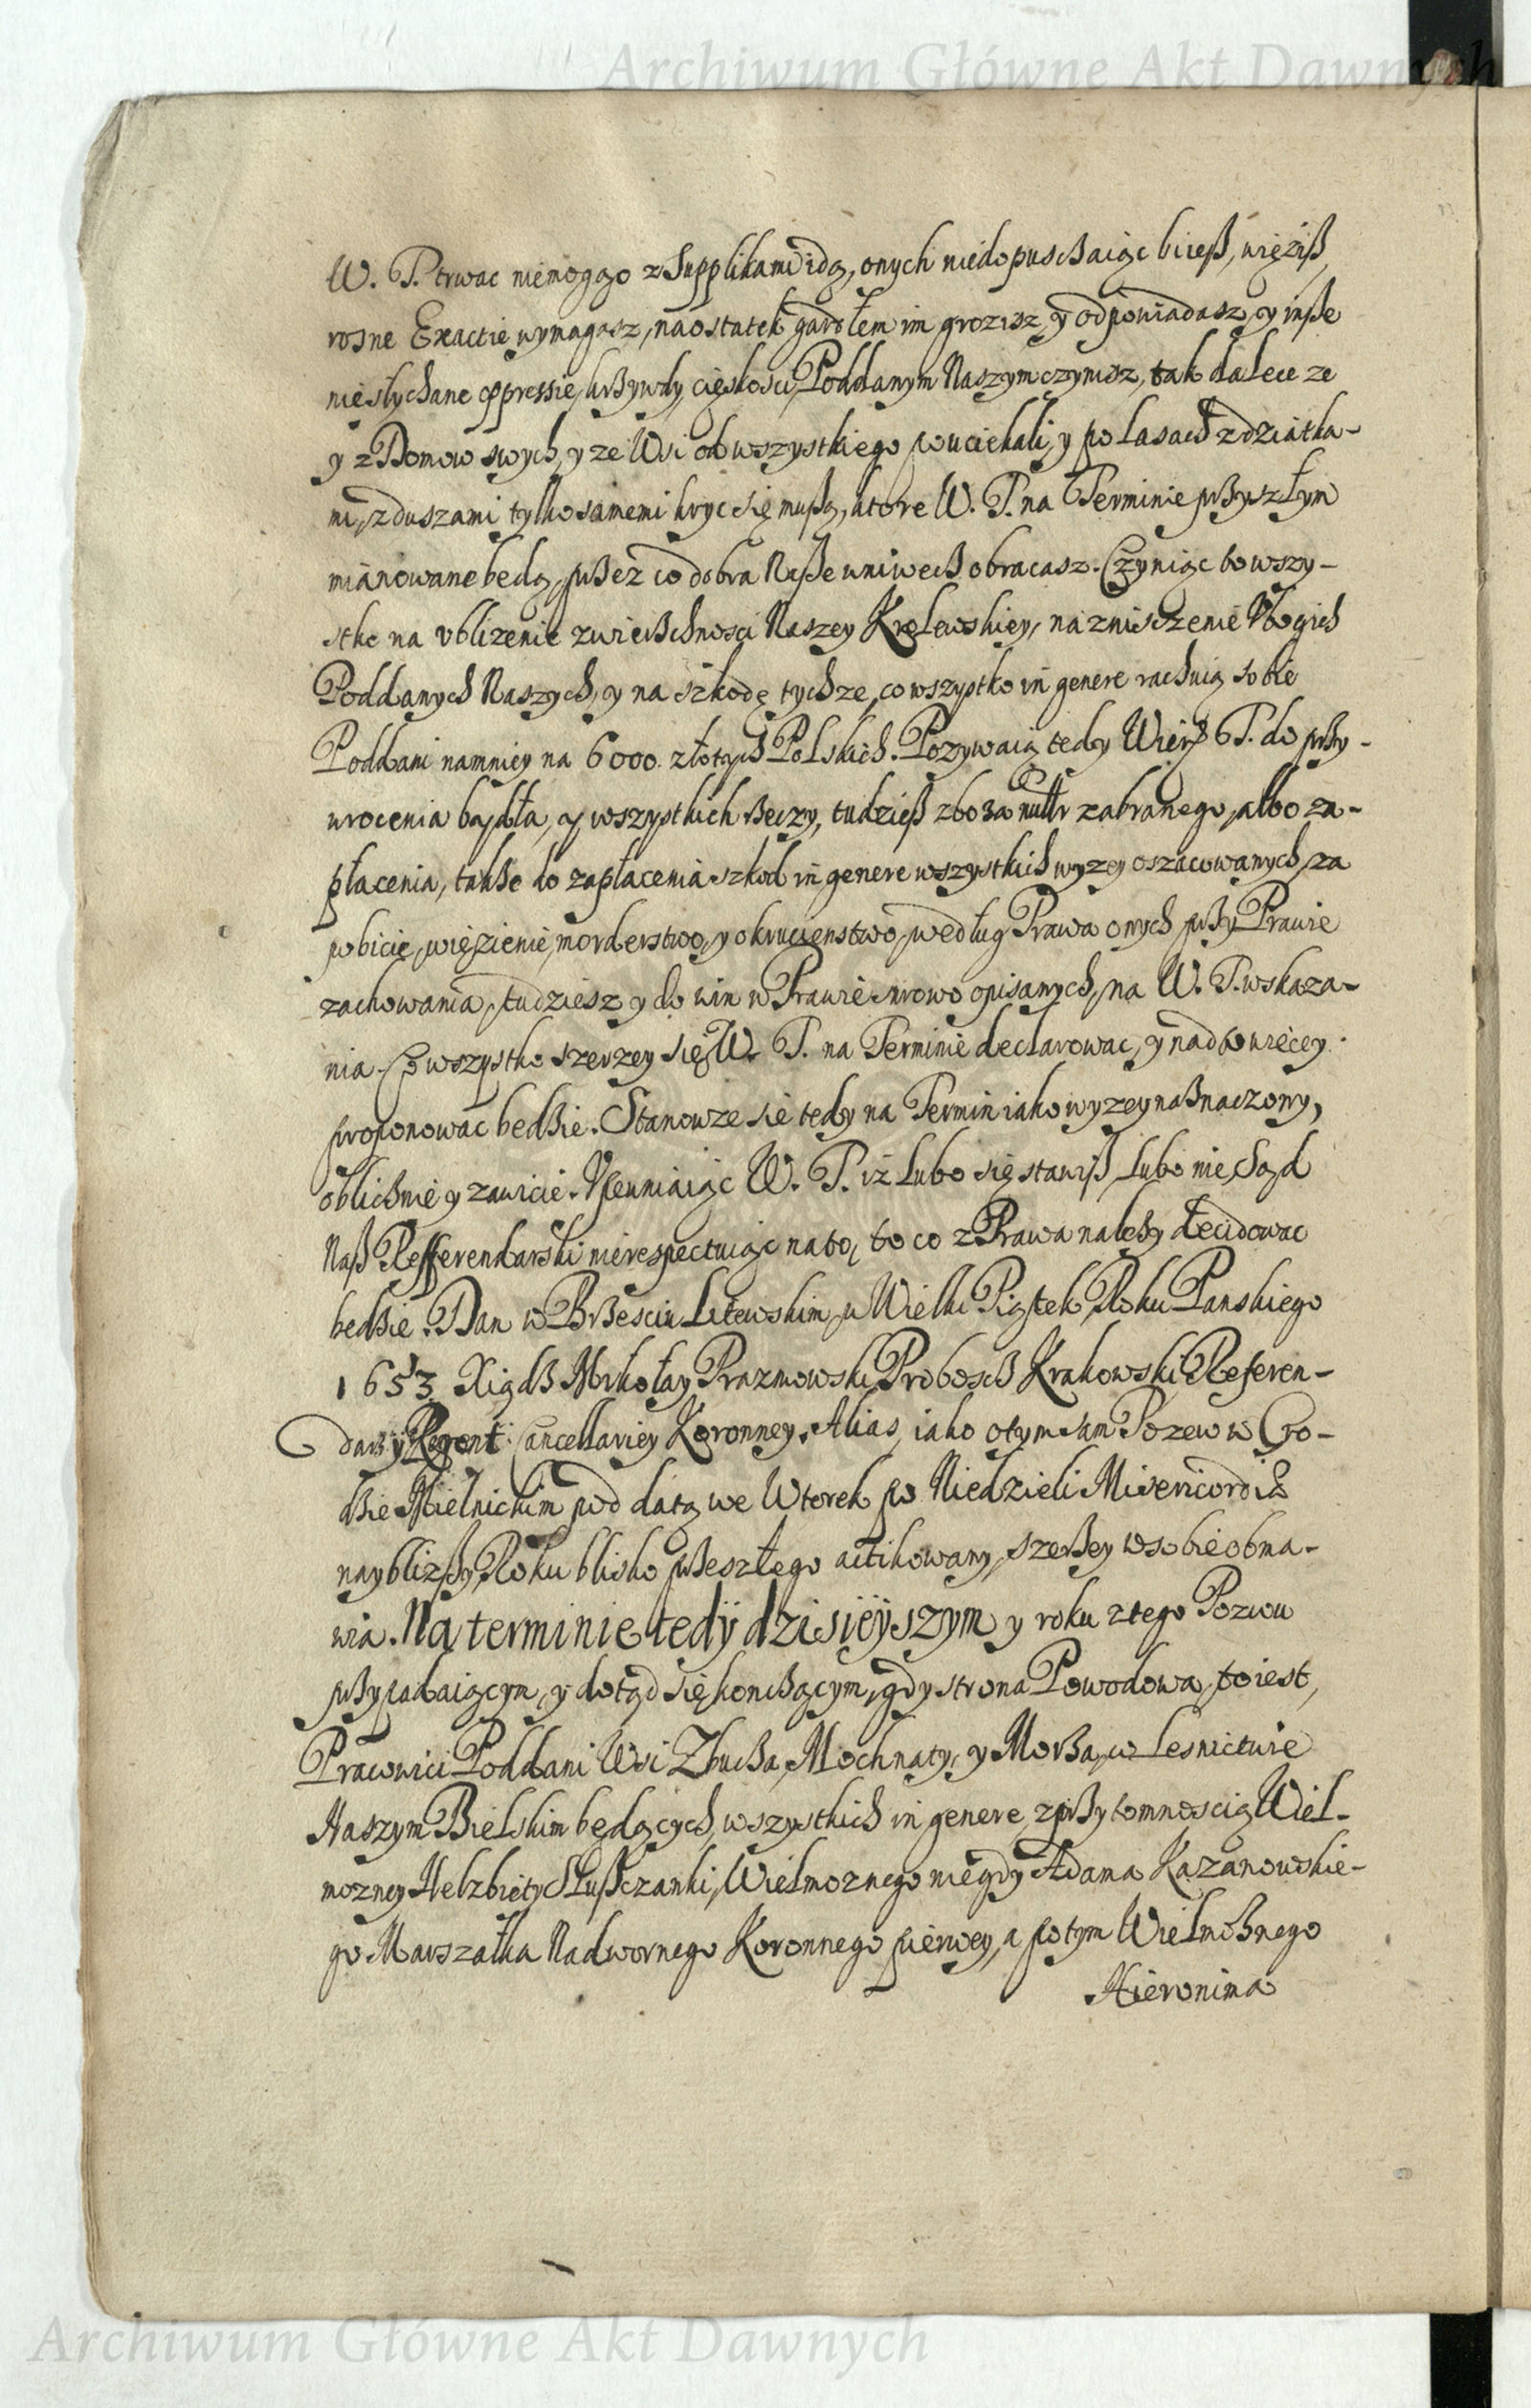 Archiwum Główne Akt Dawnych
W. T. trwac niemogąo z Supplikami idą, onych niedopuscßaiąc bijeß, więziß,
rosne Exactie wymagasz, na ostatek gardłem im grozisz, y odpowiadasz, y inße
niesłychane oppressie, krßywdy, cięskosci Poddanym Naszym czynisz, tak dalece ze
y z Domow swych, y ze Wsi od wszystkiego pouciekali, y po Lasach z dziatka-
mi, z duszami tylko samemi kryc się mußą, ktore W. T. na Terminie prßyszłym
mianowane będą, prßez co dobra Naße wniwecß obracasz. Czyniąc to wszy-
stko na vblizenie zwierßchnosci Naszey Krolewskiey, na znisczenie Vbogich
Poddanych Naszych, y na szkodę tychze, co wszystko in genere rachuią sobie
Poddani namniey na 6000. złotych Polskich. Pozywaią tedy Wier: T. do prßy-
wrocenia bydła, y wszystkich rßeczy, tudzieß zboza zabranego, albo za-
płacenia, takße do zapłacenia szkod in genere wszystkich wyzey oszacowanych, za
pobicie, więzienie, morderstwo, y okrucienstwo, według Prawa onych prßy Prawie
zachowania, tudziesz y do win w Prawie surowo opisanych, na W. T. wskaza-
nia. Co wszystko szerzey się W. T. na Terminie declarowac, y nadto więcey
proponowac będßie. Stanowze sie tedy na Termin iako wyzey naßnaczony,
oblicßnie y zawicie. Vpewniaiąc W. T. iz Lubo się stawiß, Lubo nie, Sąd
Naß Refferendarski nierespectuiąc na to, to co z Prawa naleßy decidowac
będßie. Dan w Brßesciu Litewskim, w Wielki Piątek, Roku Panskiego
1653 Xiądß Mikołay Prazmowski Proboscß Krakowski Referen-
darß y Regent Cancellariey Koronney. Alias, iako o tym sam Pozew w Gro-
dßie Mielnickim pod datą we Wtorek po Niedzieli Misericordiæ
naybliżßy, Roku blisko prßeszłego actikowany, szerßey w sobie obma-
wia. Na terminie tedÿ dzisieÿszym y roku z tego Pozwu
prßypadaiącym, y dotąd się koncßącym, gdy strona Powodowa, to iest,
Pracowici Poddani Wsi Zbucßa, Mochnaty, y Morßa, w Lesnictwie
Naszym Bielskim będących, wszystkich in genere, z prßytomnoscią Wiel-
mozney Helzbiety Słußczanki, Wielmoznego niegdy Adama Kazanowskie-
go Marszałka Nadwornego Koronnego pierwey, a potym Wielmoßnego
Hieronima
Archiwum Główne Akt Dawnych